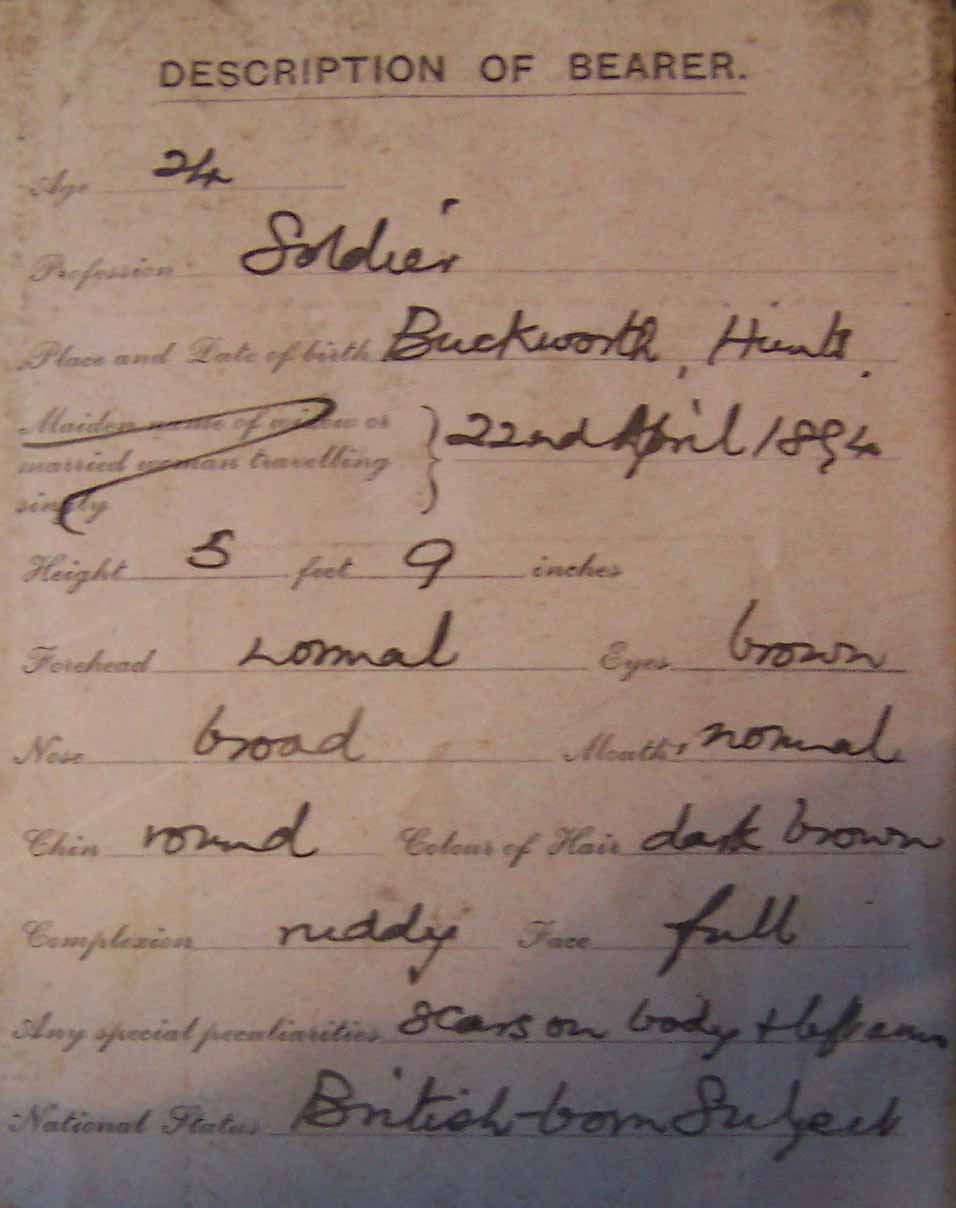 DESCRIPTION OF BEARER.
Age 24
Profession Soldier
Place and Date of birth Buckworth, Hunts.
Maiden name of widow or
married woman travelling } 22nd April 1894
singly
Height 5 feet 9 inches
Forehead normal Eyes brown
Nose broad Mouth normal
Chin round Colour of Hair dark brown
Complexion ruddy Face full
Any special peculiarities scars on body + left arm
National Status British-born Subject